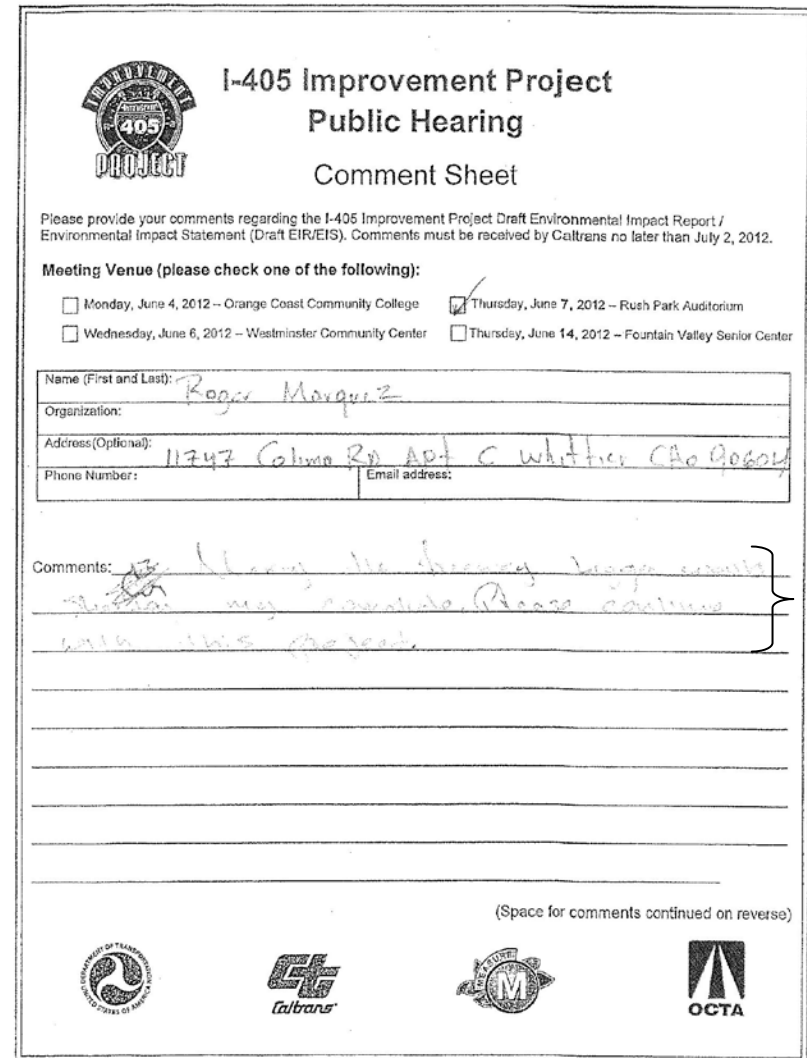 IMPROVEMENT
405
PROJECT
I-405 Improvement Project
Public Hearing
Comment Sheet
Please provide your comments regarding the I-405 Improvement Project Draft Environmental Impact Report /
Environmental Impact Statement (Draft EIR/EIS). Comments must be received by Caltrans no later than July 2, 2012.
Meeting Venue (please check one of the following):
Monday, June 4, 2012 – Orange Coast Community College
Thursday, June 7, 2012 – Rush Park Auditorium
Wednesday, June 6, 2012 – Westminster Community Center
Thursday, June 14, 2012 – Fountain Valley Senior Center
Name (First and Last): Roger Marquez
Organization:
Address(Optional): 11747 Colima RD Apt C Whittier CA 90604
Phone Number:
Email address:
Comments: the freeway bigger would
my commute. Please continue
with this project.
(Space for comments continued on reverse)
DEPARTMENT OF TRANSPORTATION
UNITED STATES OF AMERICA
Caltrans
MEASURE
M
OCTA